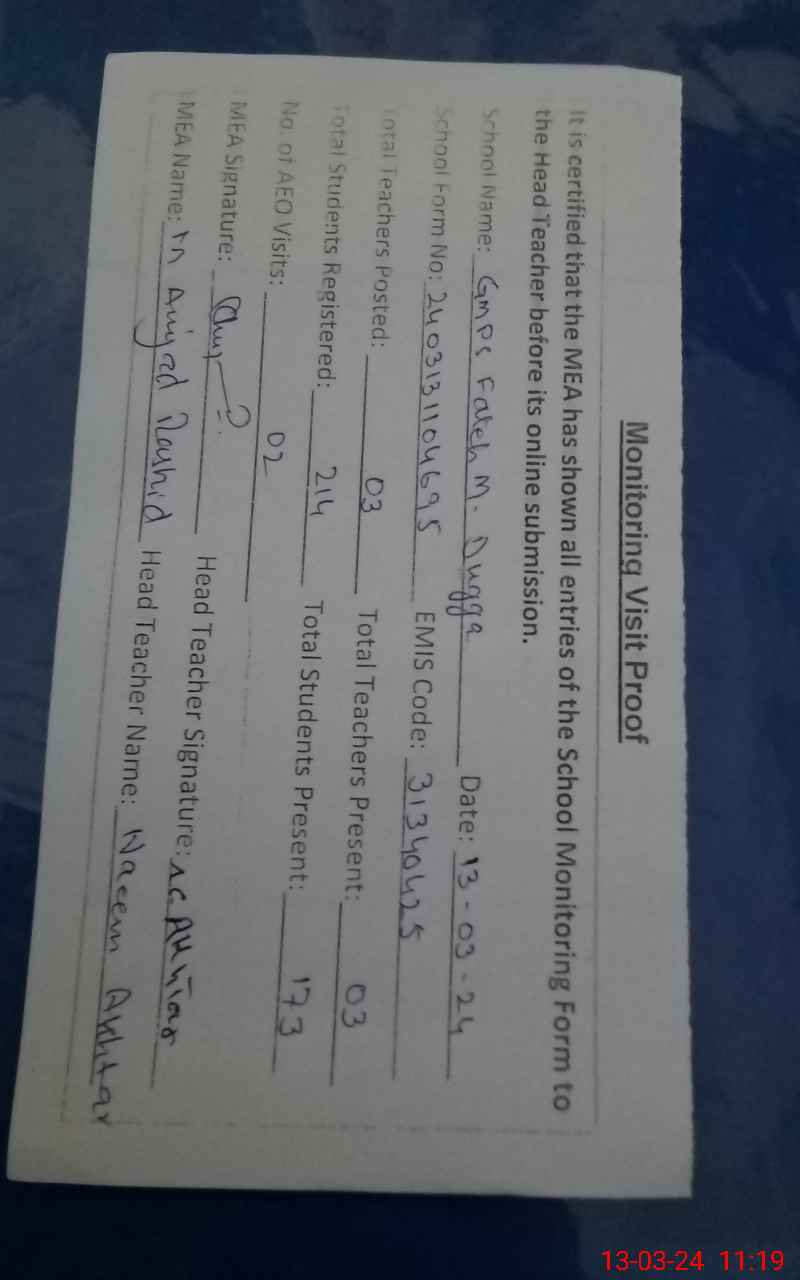 Monitoring Visit Proof
It is certified that the MEA has shown all entries of the School Monitoring Form to
the Head Teacher before its online submission.
School Name: GMPS Fateh M. Dugga Date: 13-03-24
School Form No: 2403131104695 EMIS Code: 31340425
Total Teachers Posted: 03 Total Teachers Present: 03
Total Students Registered: 214 Total Students Present: 173
No. of AEO Visits: 02
MEA Signature: Head Teacher Signature: Akhtar
MEA Name: M Amjad Rashid Head Teacher Name: Naeem Akhtar
13-03-24 11:19